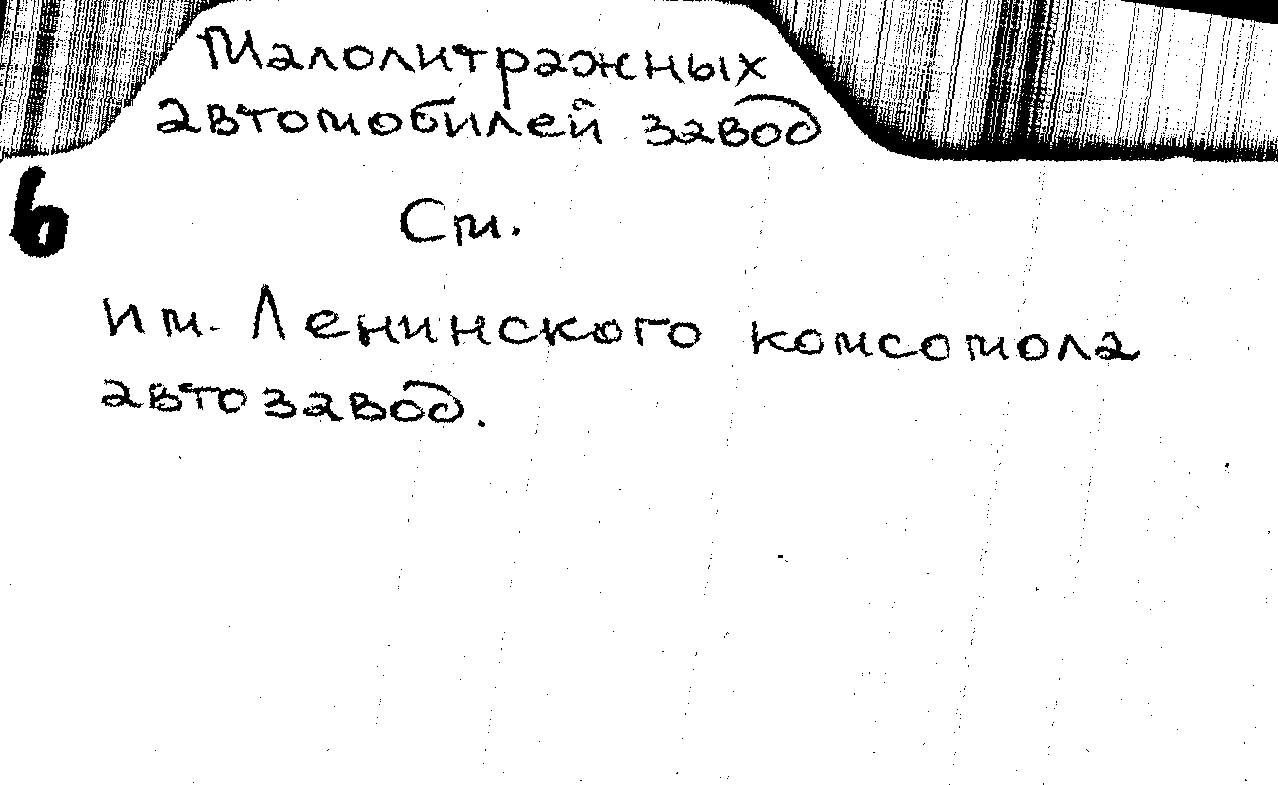 Малолитражных
автомобилей завод
6
См.
им. Ленинского комсомола
автозавод.